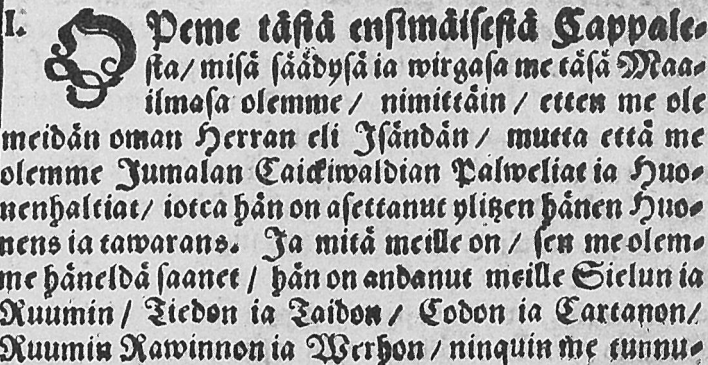 I. OPeme tästä ensimäisestä Cappale⸗
sta/ misä säädysä ia wirgasa me täsä Maa⸗
ilmasa olemme / nimittäin / etten me ole
meidän oman Herran eli Isändän / mutta että me
olemme Jumalan Caickiwaldian Palweliat ia Huo⸗
nenhaltiat/ iotca hän on asettanut ylitzen hänen Huo⸗
nens ia tawarans. Ja mitä meille on / sen me olem⸗
me häneldä saanet / hän on andanut meille Sielun ia
Ruumin / Tiedon ia Taidon / Codon ia Cartanon/
Ruumin Rawinnon ia Werhon / ninquin me tunnu⸗